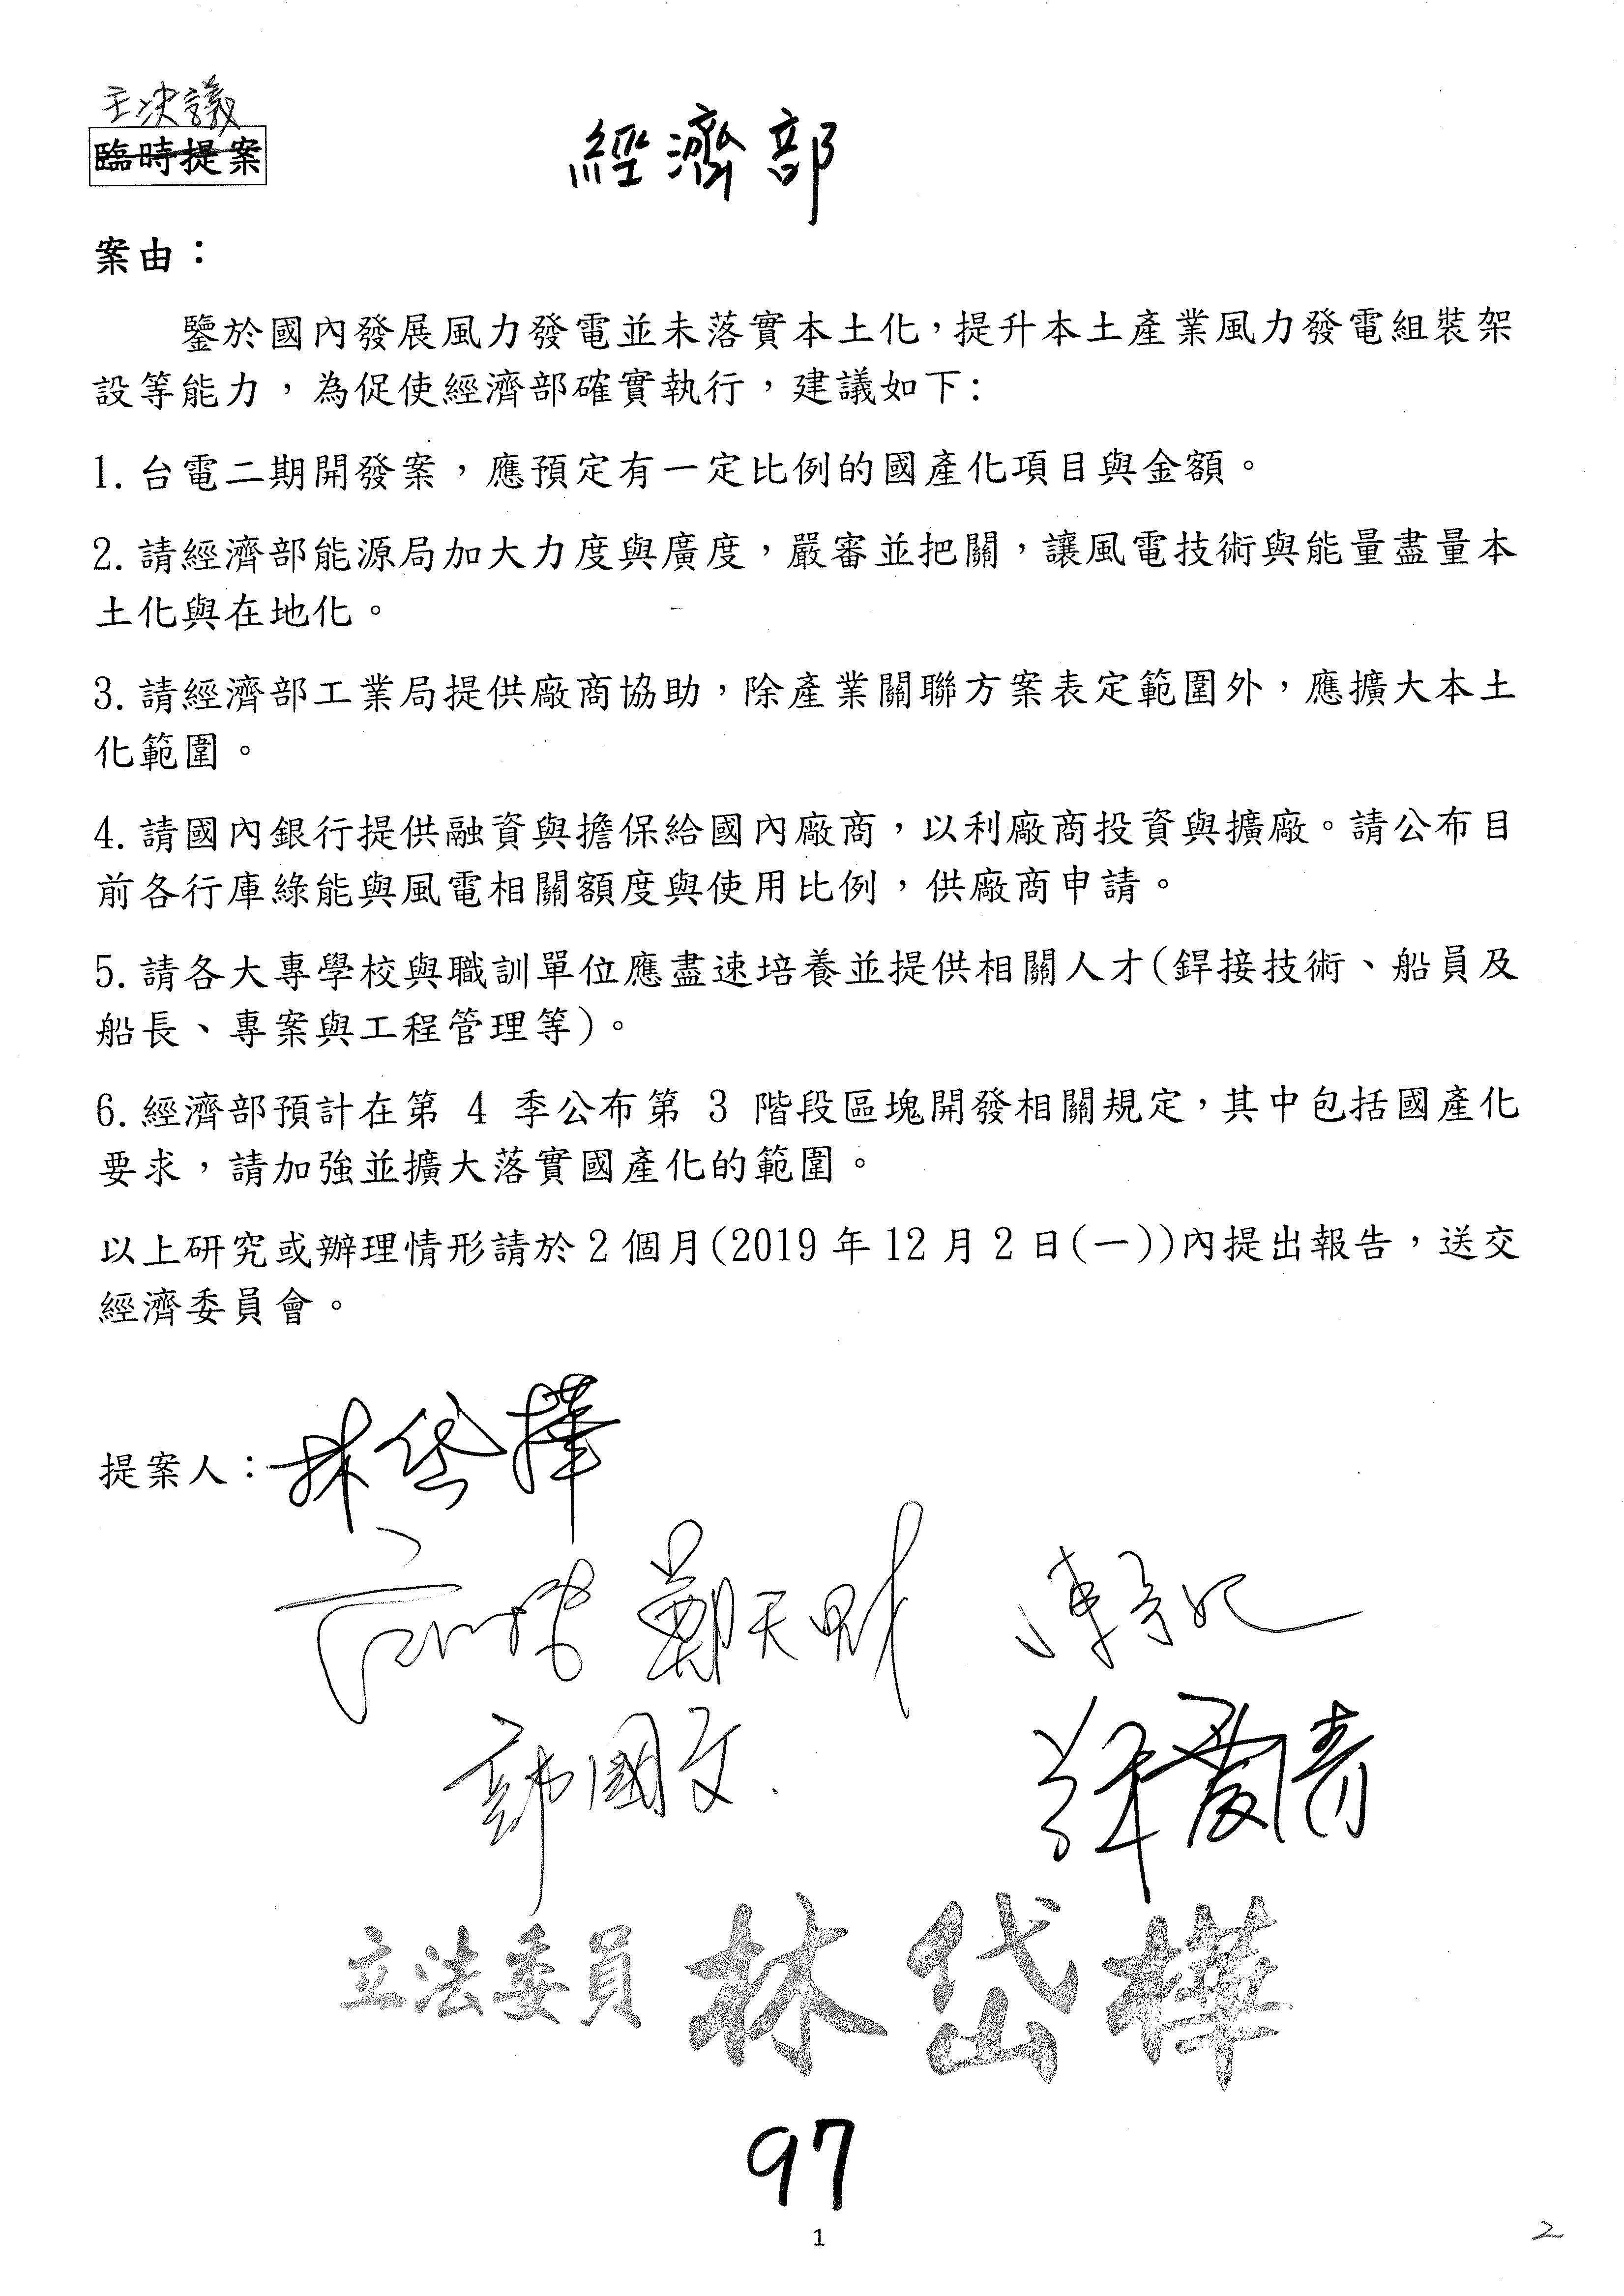 主決議
臨時提案
經濟部
案由：
鑒於國內發展風力發電並未落實本土化，提升本土產業風力發電組裝架
設等能力，為促使經濟部確實執行，建議如下：
1. 台電二期開發案，應預定有一定比例的國產化項目與金額。
2. 請經濟部能源局加大力度與廣度，嚴審並把關，讓風電技術與能量盡量本
土化與在地化。
3. 請經濟部工業局提供廠商協助，除產業關聯方案表定範圍外，應擴大本土
化範圍。
4. 請國內銀行提供融資與擔保給國內廠商，以利廠商投資與擴廠。請公布目
前各行庫綠能與風電相關額度與使用比例，供廠商申請。
5. 請各大專學校與職訓單位應盡速培養並提供相關人才(銲接技術、船員及
船長、專案與工程管理等)。
6. 經濟部預計在第 4 季公布第 3 階段區塊開發相關規定，其中包括國產化
要求，請加強並擴大落實國產化的範圍。
以上研究或辦理情形請於 2 個月(2019 年 12 月 2 日(一))內提出報告，送交
經濟委員會。
提案人：林岱樺
鄭天財
立法委員 林岱樺
97
1
2